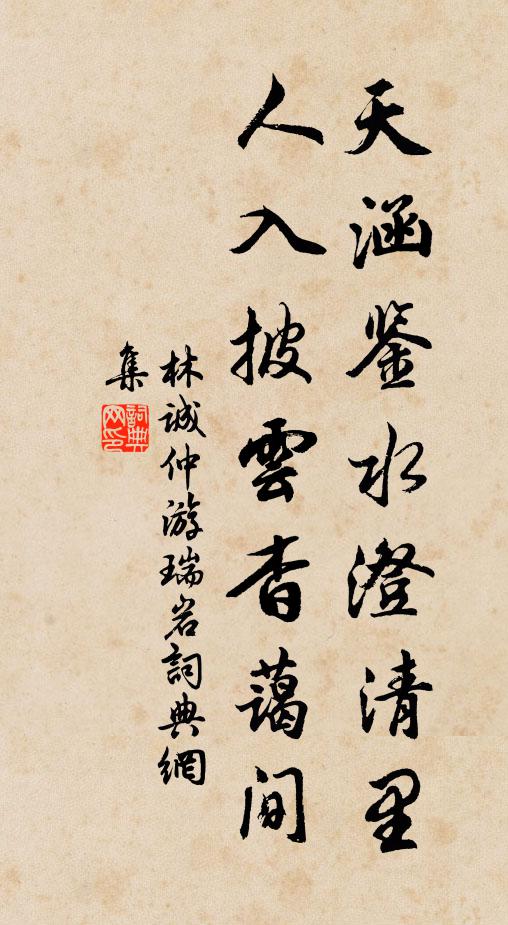 天涵鉴水澄清里
人入披雲杳藹间
林诚仲游瑞岩詞典網
集
詞典网印